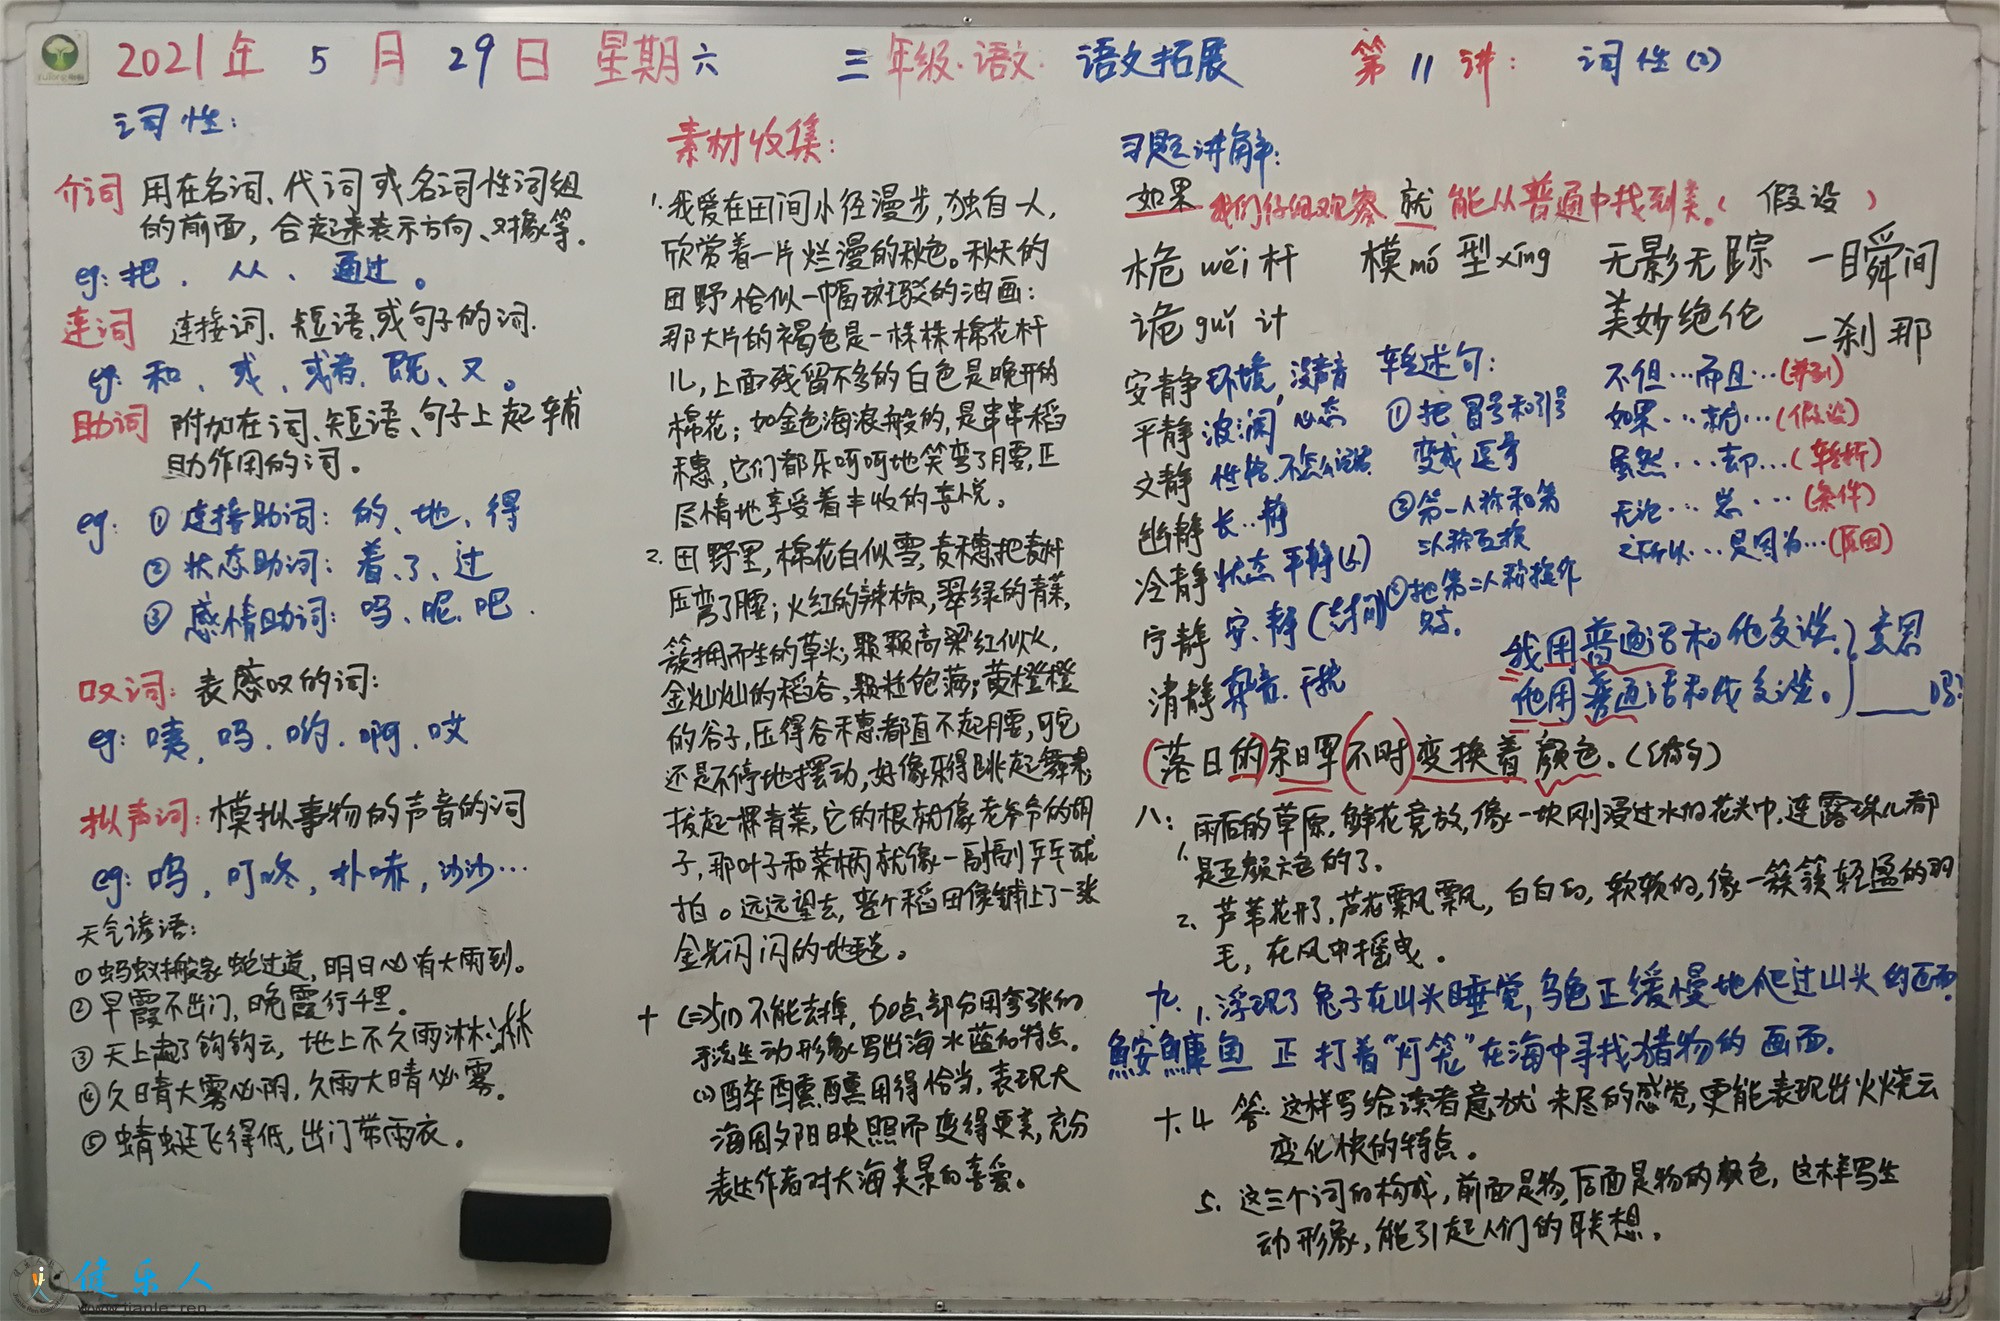 2021年 5 月 29日 星期六 三年级·语文· 语文拓展 第 11 讲: 词性(2)
词性:
介词 用在名词、代词或名词性词组
的前面,合起来表示方向、对象等。
eg: 把、从、通过。
连词 连接词、短语、或句子的词.
eg: 和、或、或者、既、又。
助词 附加在词、短语、句子上起辅
助作用的词。
eg: ①连接助词: 的、地、得
②状态助词: 着、了、过
③感情助词: 吗、呢、吧.
叹词: 表感叹的词:
eg: 咦,吗.哟.啊.哎
拟声词: 模拟事物的声音的词
eg: 呜,叮咚,扑哧,沙沙…
天气谚语:
①蚂蚁搬家蛇过道,明日必有大雨到。
②早霞不出门,晚霞行千里。
③天上起了钩钩云,地上不久雨淋淋
④久晴大雾必阴,久雨大晴必雾。
⑤蜻蜓飞得低,出门带雨衣。
素材收集:
1.我爱在田间小径漫步,独自一人,
欣赏着一片烂漫的秋色。秋天的
田野恰似一幅斑驳的油画:
那大片的褐色是一株株棉花杆
儿,上面残留不多的白色是晚开的
棉花;如金色海浪般的,是串串稻
穗,它们都乐呵呵地笑弯了腰,正
尽情地享受着丰收的喜悦。
2.田野里,棉花白似雪,麦穗把麦杆
压弯了腰;火红的辣椒,翠绿的青菜,
簇拥而生的草头;颗颗高粱红似火,
金灿灿的稻谷,颗粒饱满;黄橙橙
的谷子,压得谷穗都直不起腰,可它
还是不停地摆动,好像乐得跳起舞来
拔起一棵青菜,它的根就像老爷爷的胡
子,那叶子和菜柄就像一副副乒乓球
拍。远远望去,整个稻田像铺上了一张
金光闪闪的地毯。
十 (二)5(1)不能去掉,加点部分用夸张的
手法生动形象写出海水蓝的特点。
(2)醉醺醺用得恰当,表现大
海因夕阳映照而变得更美,充分
表达作者对大海美景的喜爱。
习题讲解:
如果我们仔细观察就能从普通中找到美。(假设)
桅 wéi 杆 模 mó 型 xíng 无影无踪 一瞬间
诡 guǐ 计 美妙绝伦 一刹那
安静 环境,没声音
平静 波澜 心态
文静 性格.不怎么说话
幽静 长..静
冷静 状态平静(人)
宁静 安.静(太空间)
清静 杂音.干扰
转述句:
①把冒号和引号
变成逗号
②第一人称和第
三人称互换
③把第二人称换作
不但…而且…(并列)
如果…就…(假设)
虽然…却…(转折)
无论…总…(条件)
之所以…是因为…(原因)
我用普通话和他交谈.
他用普通话和我交谈。 意思____吗?
(落日的)余晖(不时)变换着颜色.(缩句)
八: 1.雨后的草原,鲜花竞放,像一块刚浸过水的花头巾,连露珠儿都
是五颜六色的了。
2.芦苇花开了,芦花飘飘,白白的,软软的,像一簇簇轻盈的羽
毛,在风中摇曳。
九.1.浮现了兔子在山头睡觉,乌龟正缓慢地爬过山头的画面.
鮟鱇鱼正打着“灯笼”在海中寻找猎物的画面.
十.4 答:这样写给读者意犹未尽的感觉,更能表现出火烧云
变化快的特点。
5.这三个词的构成,前面是物,后面是物的颜色,这样写生
动形象,能引起人们的联想。
健乐人
www.jianle.ren